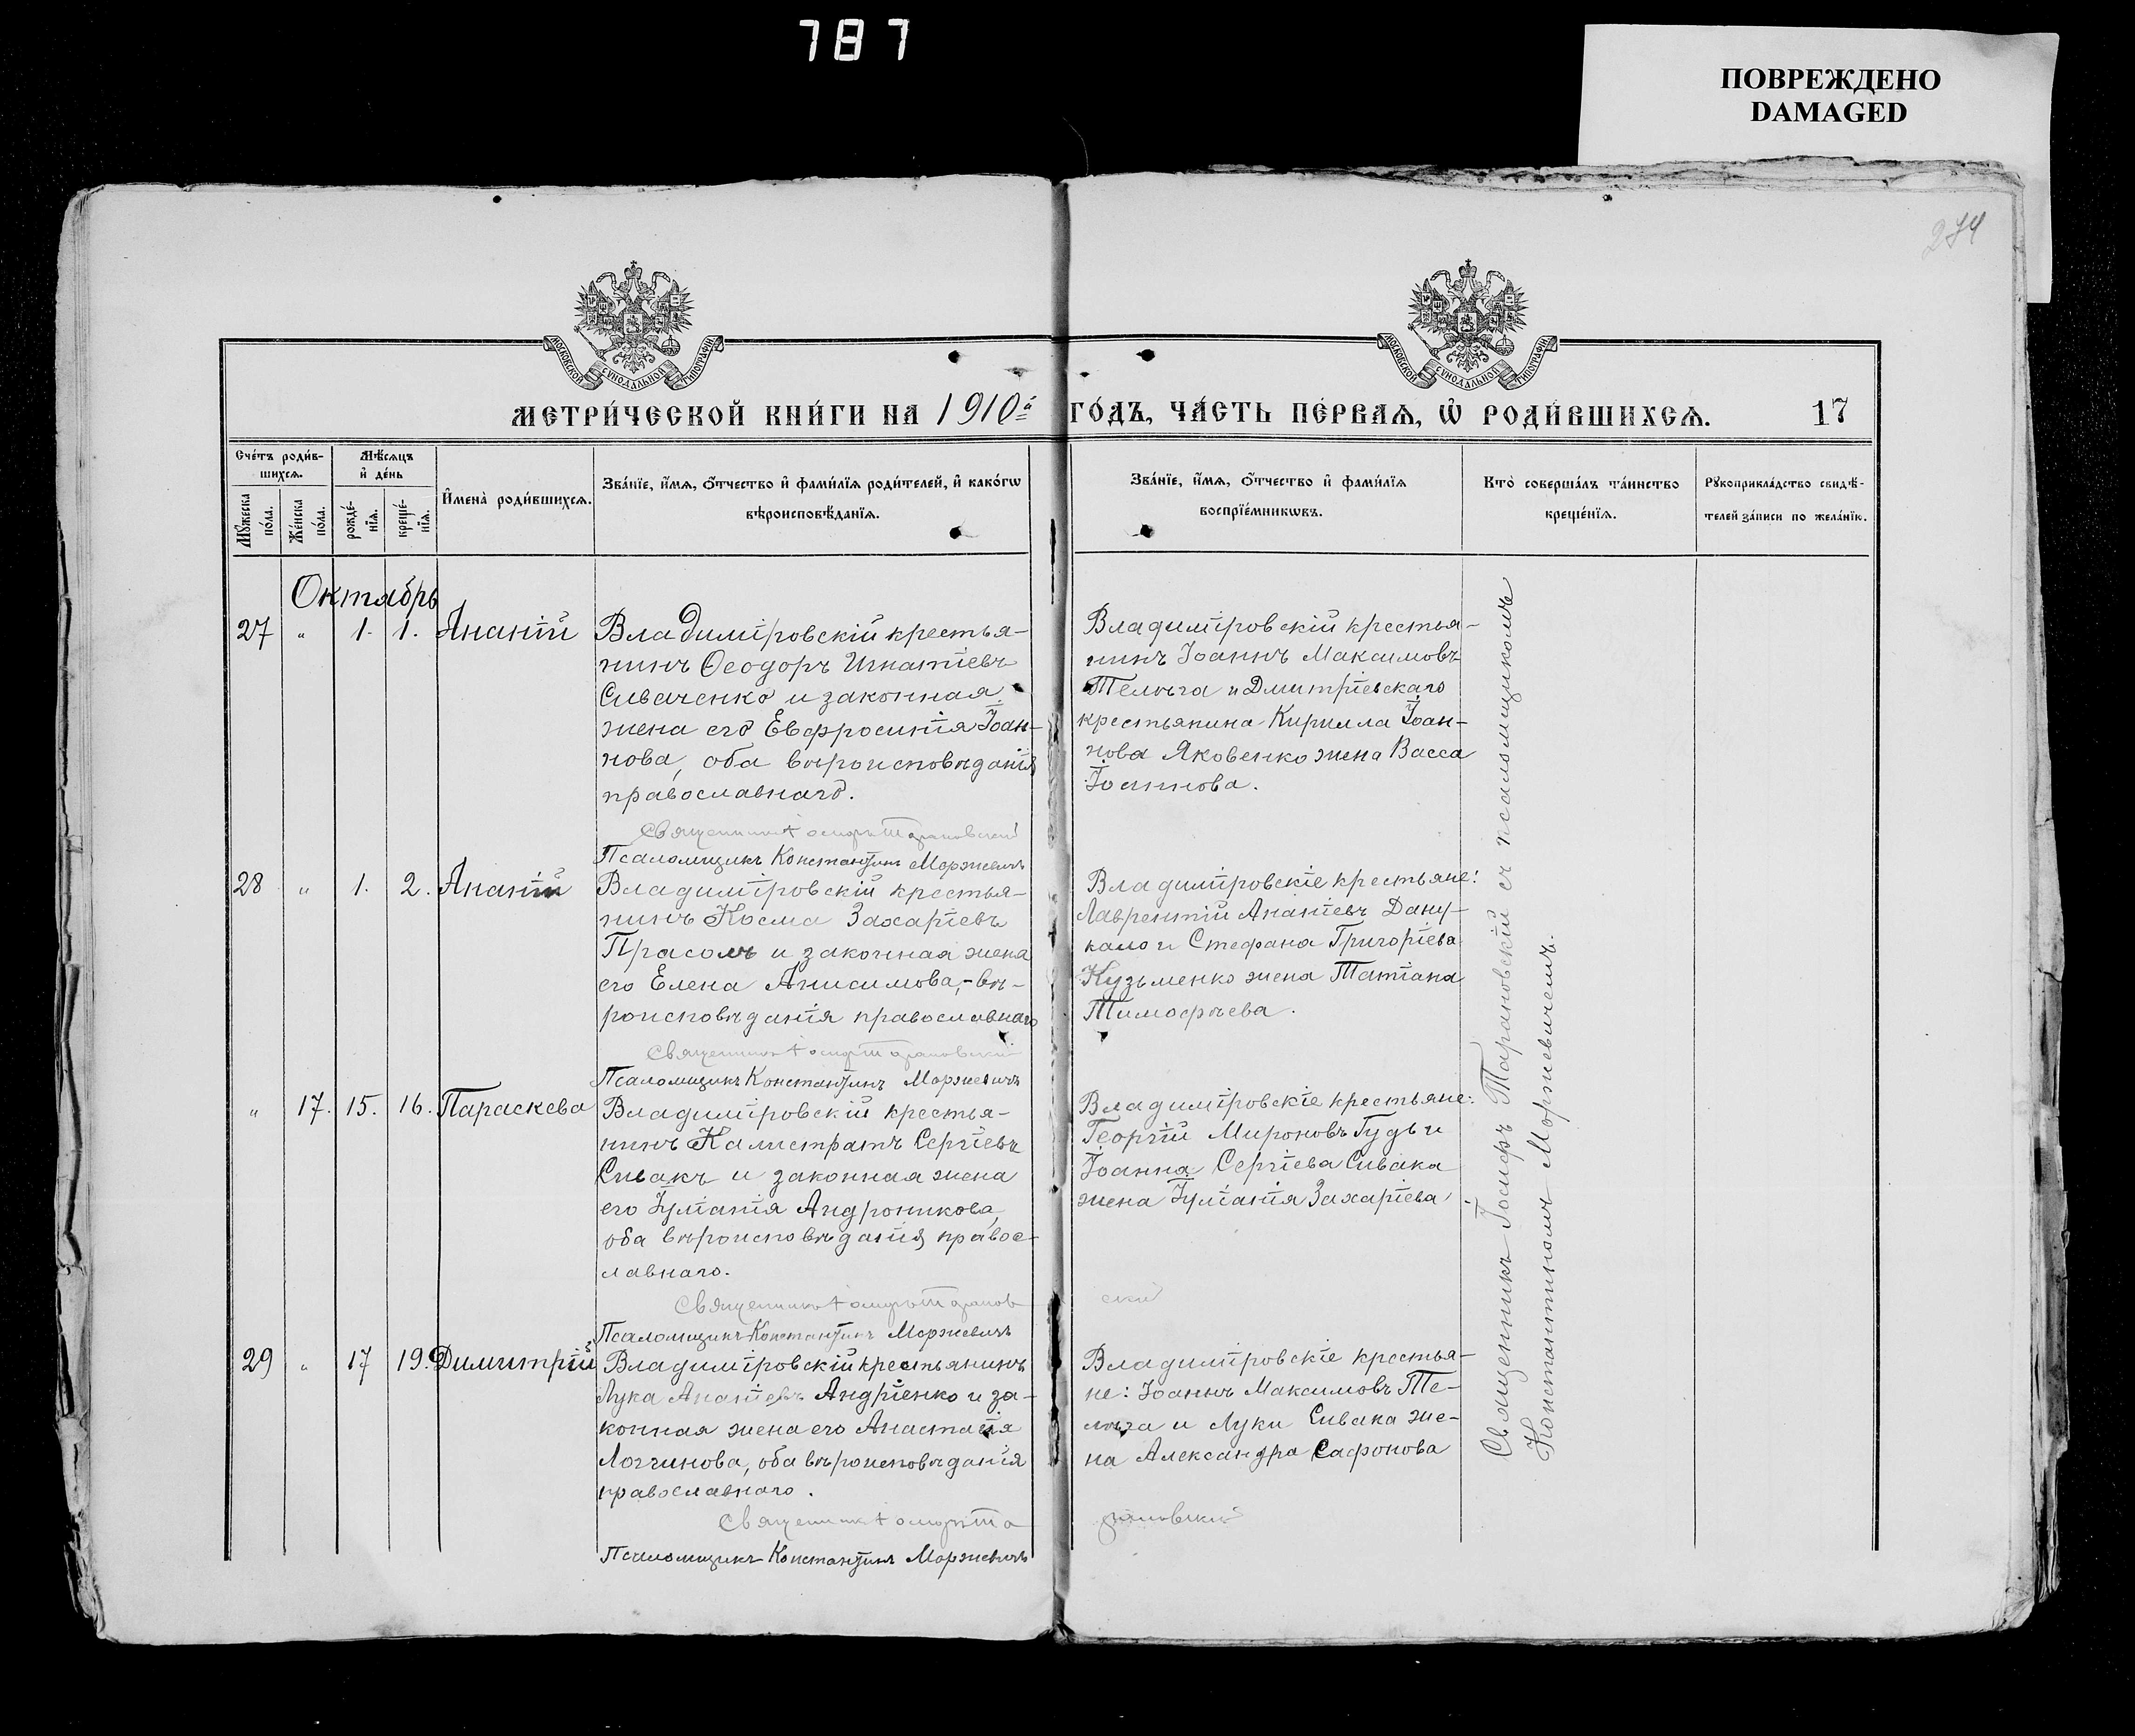 787
ПОВРЕЖДЕНО
DAMAGED
274
МОСКОВСКОЙ СѴНОДАЛЬНОЙ ТИПОГРАФІИ
МОСКОВСКОЙ СѴНОДАЛЬНОЙ ТИПОГРАФІИ
МЕТРИ́ЧЕСКОЙ КНИ́ГИ НА 1910й ГО́ДЪ, ЧА́СТЬ ПЕ́РВАѦ, Ѡ РОДИ́ВШИХСѦ. 17
Сче́тъ роди́в-
шихсѧ.
Мꙋ́жеска по́ла.
Же́нска по́ла.
Мѣ́сѧцъ и҆ де́нь
рожде́-нїѧ.
креще́-нїѧ.
И҆мена̀ роди́вшихсѧ.
Зва́нїе, и҆́мѧ, ѻ҆́тчество и҆ фами́лїѧ роди́телей, и҆ како́гѡ
вѣроисповѣ́данїѧ.
Зва́нїе, и҆́мѧ, ѻ҆́тчество и҆ фами́лїѧ
воспрїе́мникѡвъ.
Кто̀ соверша́лъ та́инство
креще́нїѧ.
Рꙋкоприкла́дство свидѣ́-
телей за́писи по жела́нїю.
Октябрь
27 " 1. 1. Ананій
Владимiровскій крестья-
нинъ Ѳеодоръ Игнатіевъ
Сиваченко и законная
жена его Евфросинія Іоан-
нова, оба вѣроисповѣданія
православнаго.
Священникъ Іосифъ Тарановскій
Псаломщикъ Константинъ Моржевичъ
Владимiровскій крестья-
нинъ Іоаннъ Максимовъ
Телѣга и Дмитріевскаго
крестьянина Кирилла Іоан-
нова Яковенко жена Васса
Іоаннова.
28 " 1. 2. Ананій
Владимiровскій крестья-
нинъ Косма Захаріевъ
Прасолъ и законная жена
его Елена Анисимова,-вѣ-
роисповѣданія православнаго
Священникъ Іосифъ Тарановскій
Псаломщикъ Константинъ Моржевичъ
Владимiровскіе крестьяне:
Лаврентій Ананіевъ Дану-
кало и Стефана Григоріева
Кузьменко жена Татіана
Тимофѣева.
" 17. 15. 16. Параскева
Владимiровскій крестья-
нинъ Калистратъ Сергіевъ
Сивакъ и законная жена
его Іуліанія Андроникова,
оба вѣроисповѣданія правос-
лавнаго.
Священникъ Іосифъ Таранов
скій
Псаломщикъ Константинъ Моржевичъ
Владимiровскіе крестьяне:
Георгій Мироновъ Гудь и
Іоанна Сергіева Сивака
жена Іуліанія Захаріева.
29 " 17 19. Димитрій
Владимiровскій крестьянинъ
Лука Ананіевъ Андріенко и за-
конная жена его Анастасія
Логгинова, оба вѣроисповѣданія
православнаго.
Священникъ Іосифъ Та
рановскій
Псаломщикъ Константинъ Моржевичъ
Владимiровскіе крестья-
не: Іоаннъ Максимовъ Те-
лѣга и Луки Сивака же-
на Александра Сафонова
Священникъ Іосифъ Тарановскій съ псаломщикомъ
Константиномъ Моржевичемъ.